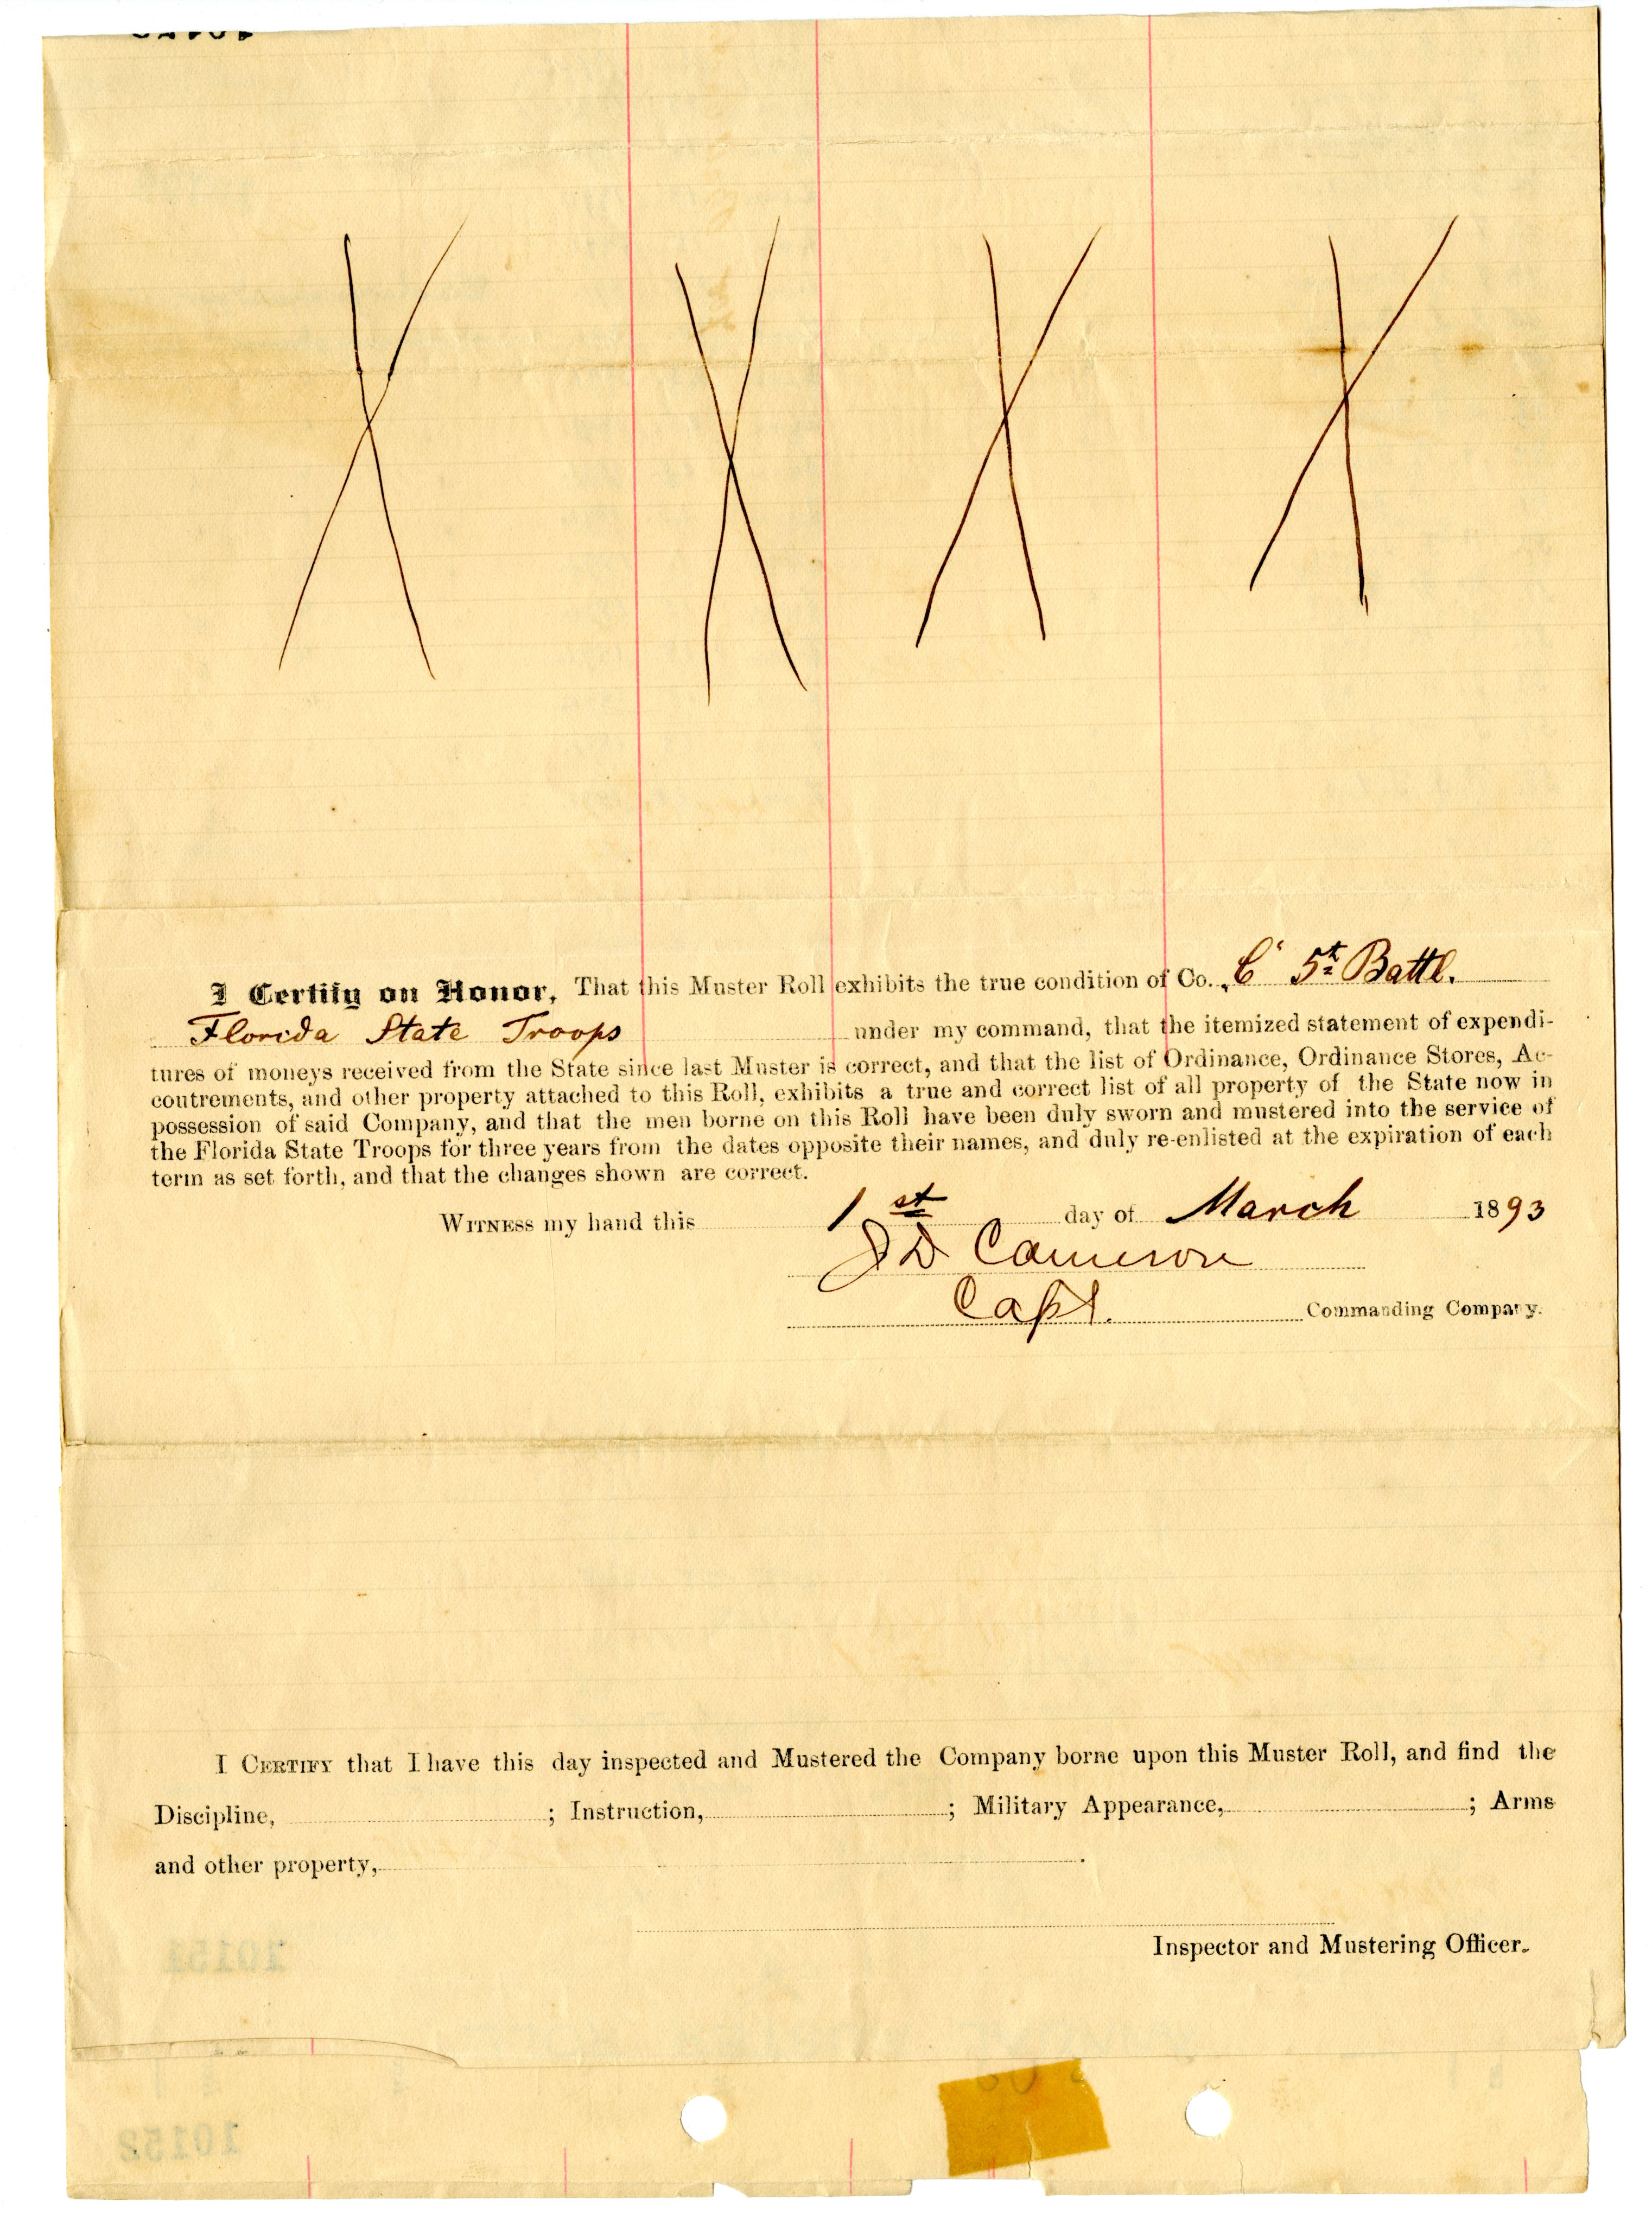 I Certify on Honor, That this Muster Roll exhibits the true condition of Co. "C" 5th Battl.
Florida State Troops under my command, that the itemized statement of expendi-
tures of moneys received from the State since last Muster is correct, and that the list of Ordinance, Ordinance Stores, Ac-
coutrements, and other property attached to this Roll, exhibits a true and correct list of all property of the State now in
possession of said Company, and that the men borne on this Roll have been duly sworn and mustered into the service of
the Florida State Troops for three years from the dates opposite their names, and duly re-enlisted at the expiration of each
term as set forth, and that the changes shown are correct.
WITNESS my hand this 1st day of March 1893
J D Cameron
Capt. Commanding Company.
I CERTIFY that I have this day inspected and Mustered the Company borne upon this Muster Roll, and find the
Discipline, ; Instruction, ; Military Appearance, ; Arms
and other property, .
Inspector and Mustering Officer.
10151
10152